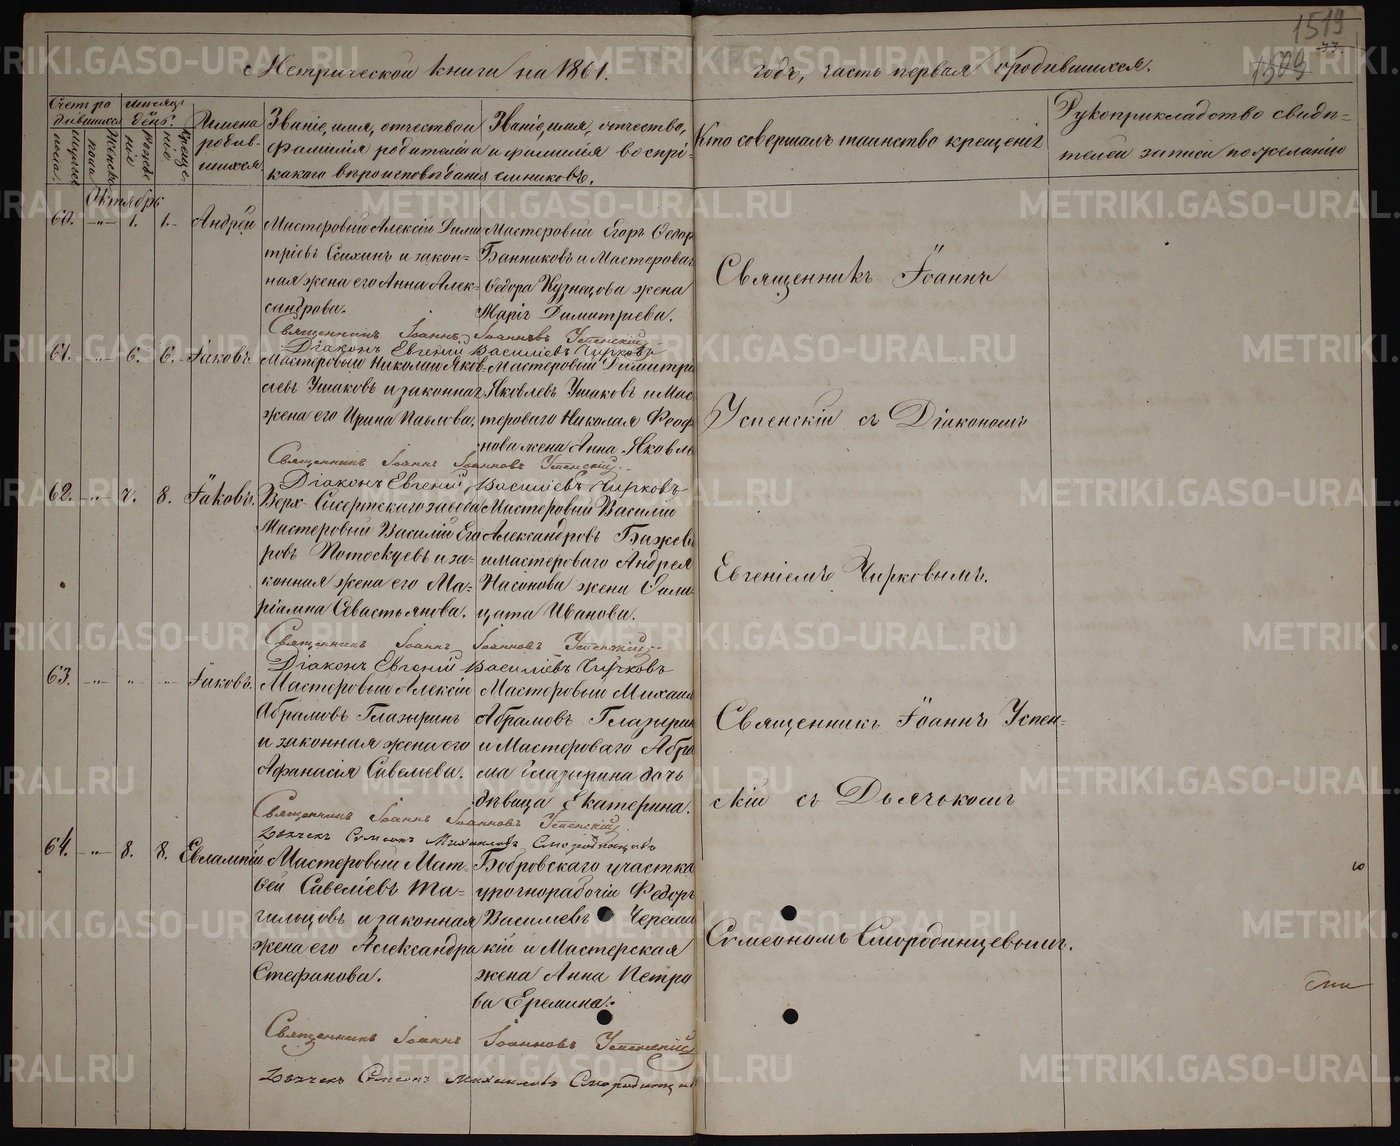 1519
33.
1509
Метрической книги на 1861.
годъ, часть первая о родившихся.
Счетъ родившихся
мужеска пола
женска пола
Мѣсяцъ и день
рожденія
крещенія
Имена родив-
шихся
Званіе, имя, отчество и
фамилія родителей и
какого вѣроисповѣданія
Званіе, имя, отчество,
и фамилія воспрі-
емниковъ.
Кто совершалъ таинство крещенія
Рукоприкладство свидѣ-
телей записи по желанію
Октябрь
60. -„- 1. 1. Андрей
Мастеровый Алексѣй Дими
тріевъ Сысихинъ и закон-
ная жена его Анна Алек-
сандрова.
Мастеровый Егоръ Ѳедор
Банниковъ и Мастероваг
Ѳедора Кузнецова жена
Марія Димитріева.
Священникъ Іоаннъ
Священникъ Іоаннъ Іоанновъ Успенскій
Діаконъ Евгеній Василіевъ Чирковъ
61. -„- 6. 6. Іаковъ.
Мастеровый Николай Яков-
левъ Ушаковъ и законная
жена его Ирина Павлова.
Мастеровый Димитрі
Яковлевъ Ушаковъ и Мас
тероваго Николая Ѳеоф
нова жена Анна Яковле
Успенскій съ Діакономъ
Священникъ Іоаннъ Іоанновъ Успенскій
Діаконъ Евгеній Василіевъ Чирковъ
62. -„- 7. 8. Іаковъ.
Верх-Сысертскаго завода
Мастеровый Василій Его
ровъ Потоскуевъ и за-
конная жена его Ма-
ріамна Севастьянова.
Мастеровый Василій
Александровъ Бажевъ
и мастероваго Андрея
Насонова жена Оли
цата Иванова.
Евгеніемъ Чирковымъ.
Священникъ Іоаннъ Іоанновъ Успенскій
Діаконъ Евгеній Василіевъ Чирковъ
63. -„- „ -„- Іаковъ.
Мастеровый Алексѣй
Абрамовъ Глазыринъ
и законная жена его
Афанасія Савельева.
Мастеровый Михаил
Абрамовъ Глазырин
и Мастероваго Абра
ма Глазырина дочь
дѣвица Екатерина.
Священникъ Іоаннъ Успен-
скій съ Дьячкомъ
Священникъ Іоаннъ Іоанновъ Успенскій
Дьячекъ Симеонъ Михаиловъ Смородинцовъ
64. -„- 8. 8. Евлампій
Мастеровый Мат-
ѳей Савеліевъ Та-
гильцовъ и законная
жена его Александра
Стефанова.
Бобровскаго участка
урочнорабочій Ѳедоръ
Василіевъ Череми
кій и Мастерская
жена Анна Петро
ва Еремина.
Симеономъ Смородинцевымъ.
Священникъ Іоаннъ Іоанновъ Успенскій
Дьячекъ Симеонъ Михаиловъ Смородинцов
METRIKI.GASO-URAL.RU